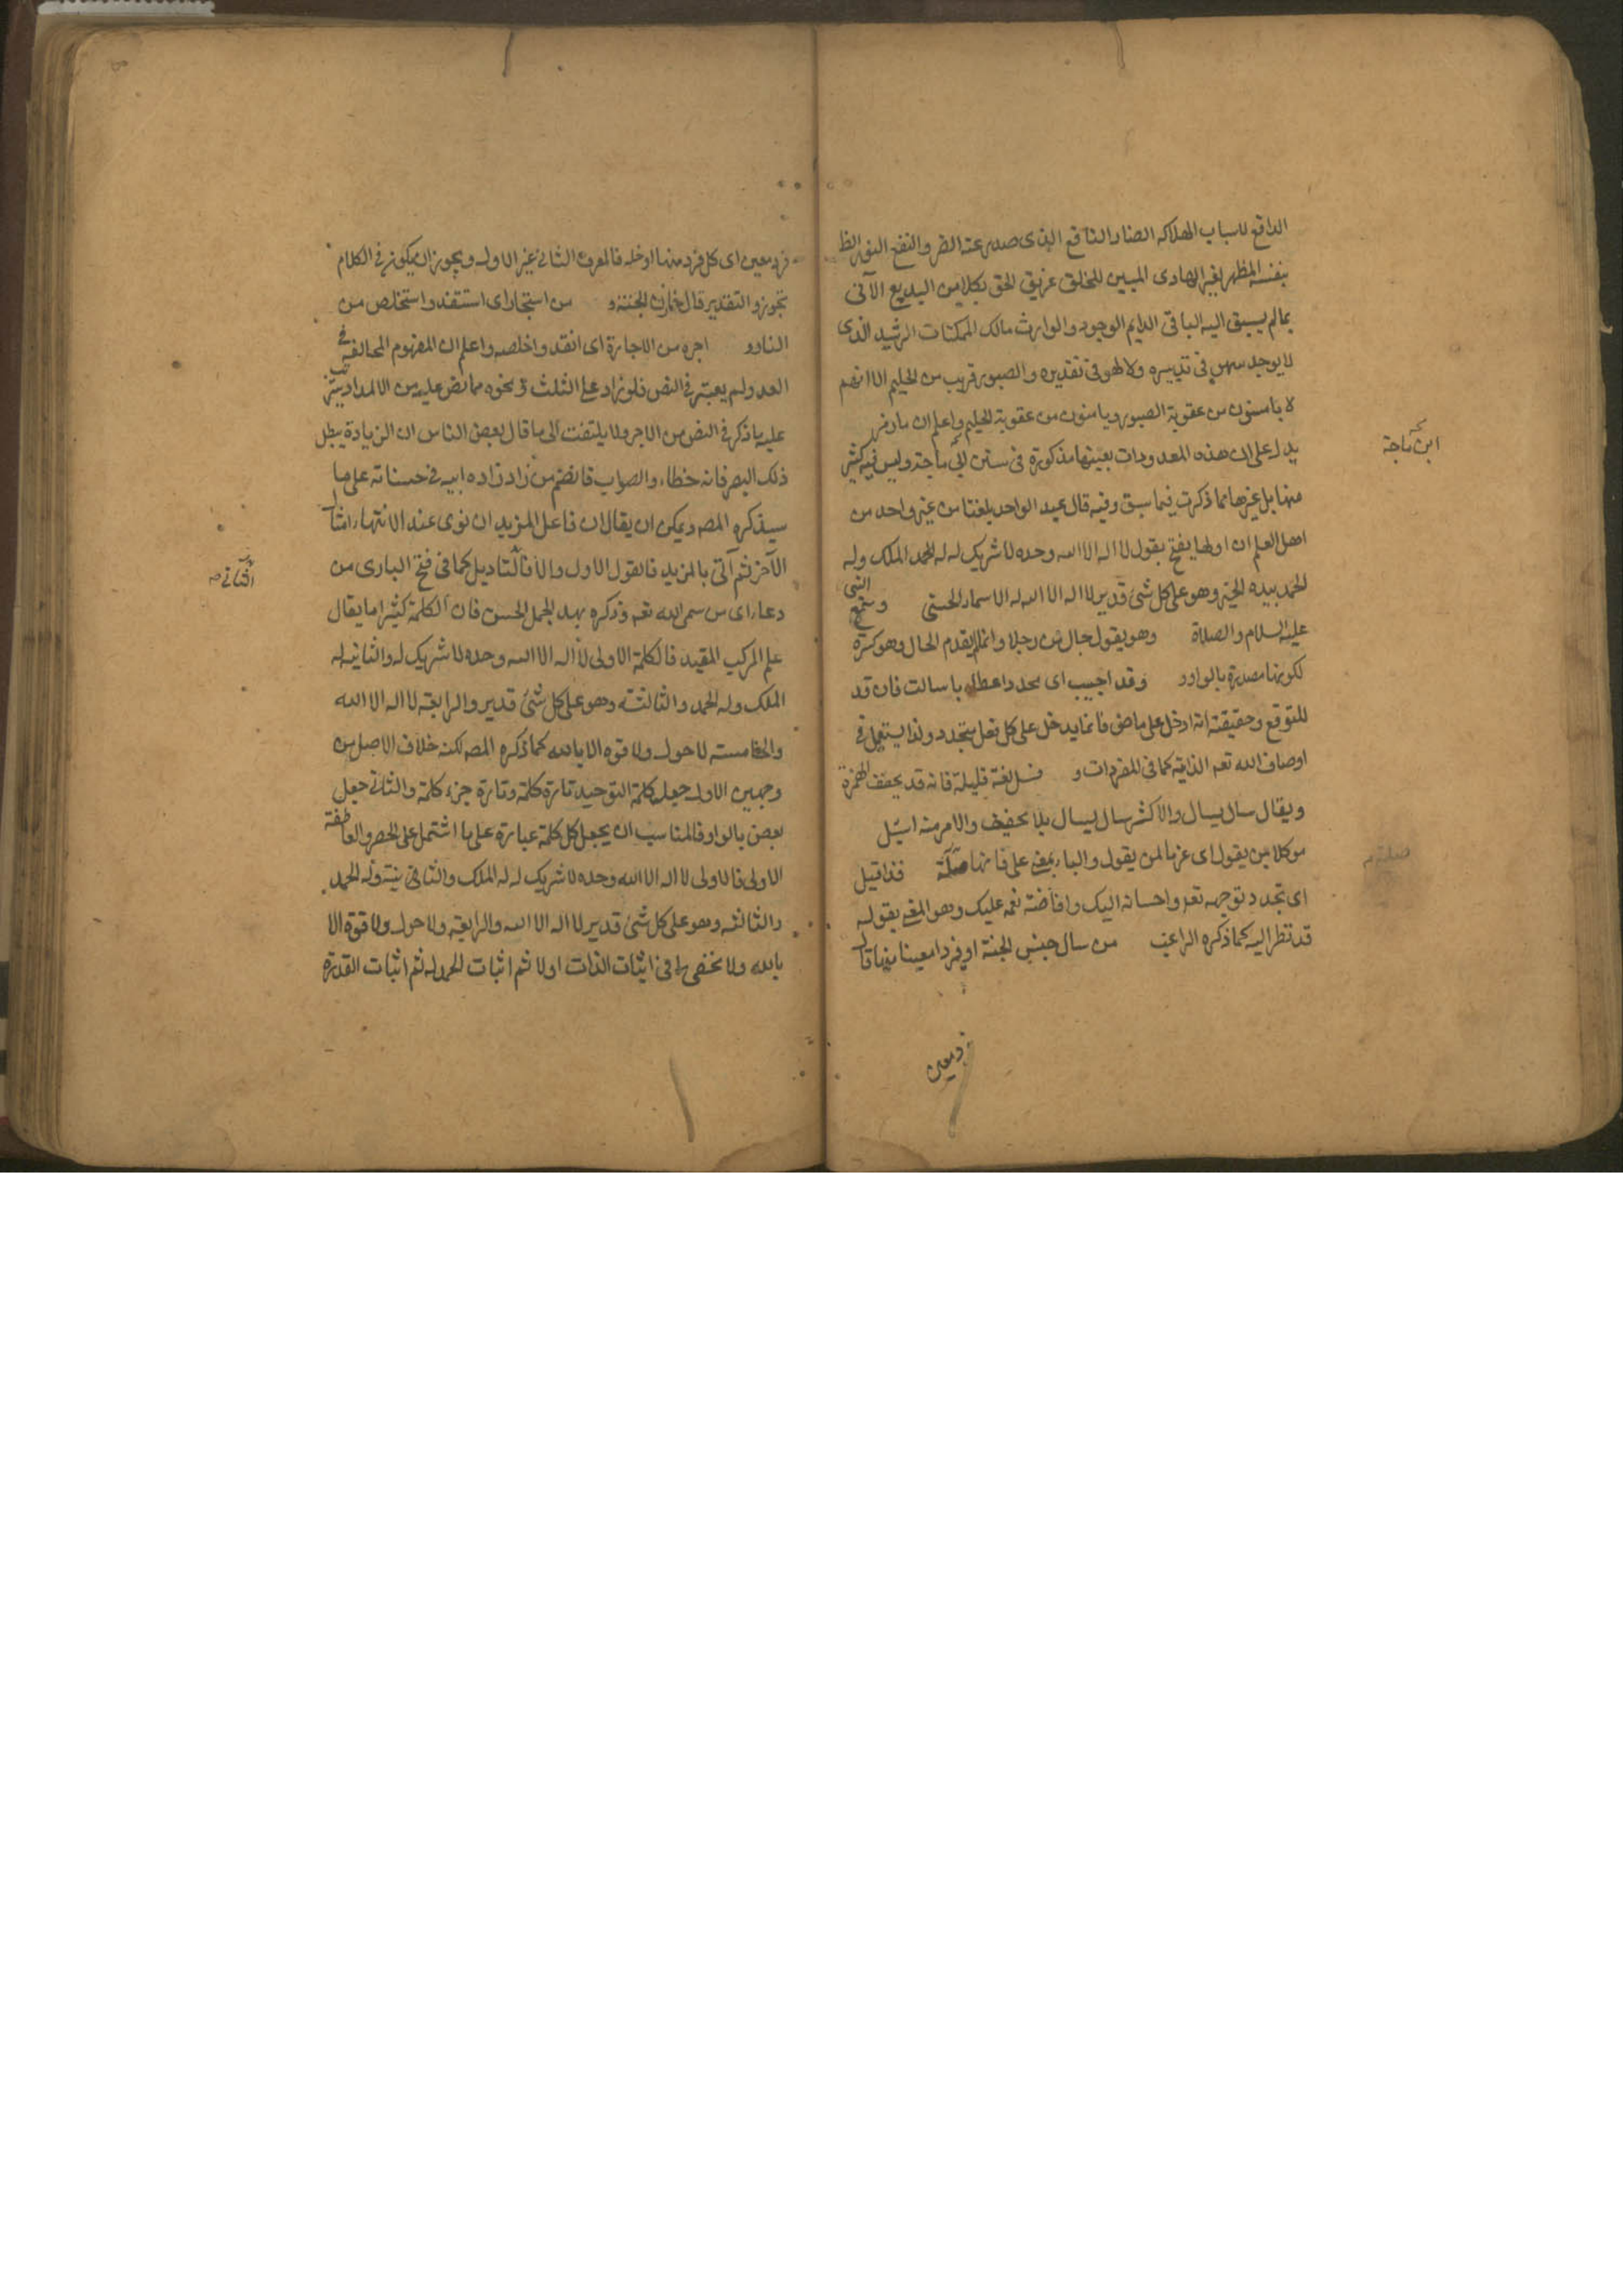 الدافع لاسباب الهلاكه الضار النافع الذى صدر عنه الضر والنفع النور الظ
بنفسه المظهر لغيره الهادى المبين للخلق عن يق الحق بكلا من البديع الآتى
بمالم يسبق اليه الباقى الدايم الوجود والوارث مالك الممكنات الرشيد الذى
لا يوجد سهو فى تدبيره ولا لهو فى تقديره والصبور قريب من الحليم الا انهم
لا يامنون من عقوبة الصبور ويامنون من عقوبة الحليم واعلم ان مارمز
يدل على ان هذه المعدودات بعينها مذكورة فى سنن ابى ماجة وليس فيه كثير
ابن ماجة
منها بل غيرها مما ذكرت فيما سبق وفيه قال عبد الواحد بلغنا من غير واحد من
اهل العلم ان اولها يفتح بقول لا اله الا الله وحده لا شريك له له الحمد الملك وله
الحمد بيده الخير وهو على كل شئ قدير لا اله الا الله له الاسماء الحسنى وسمع النبى
عليه السلام والصلاة وهو يقول حال من رجلا وانما لم يقدم الحال وهو نكرة
لكونها مصدرة بالواو وقد اجيب اى بحدد اعطاء ما سالت فان قد
للتوقع وحقيقته انه ادخل على ماض فانما يدخل على كل فعل متجدد ولذا يستعمل فى
اوصاف الله تعه الذاتية كما فى المفردات و فسل لغة قليلة فانه قد يخفف الهمزة
ويقال سال يسال والاكثر سال يسال بلا تخفيف والامر منه اسئل
موكلا بمن يقول اى عزما لمن يقول والباء بمعنى على فانها صلته فذا قيل
صلته
اى تجدد توجهه تعه واحسانه اليك وافاضة نعمه عليك وهو المعنى بقوله
قد نظر اليه كما ذكره الراغب من سال جنس الجنة او فردا معينا منها قال
فرد معين
فرد معين اى كل فرد منها ادخله فالمعرف الثانى غير الاول ويجوز ان يكون فى الكلام
تجوز والتقدير قال خازن الجنة و من استجار اى استنقذ واستخلص من
النار و اجره من الاجارة اى انقذ واخلصه واعلم ان المفهوم المخالفة فى
العدد لم يعتبر فى النص فلو زاد على الثلث و نحوه مما نص عليه من الاعداد يترتب
عليه ما ذكر فى النص من الاجر ولا يلتفت الى ما قال بعض الناس ان الزيادة يبطل
ذلك البصر فانه خطاء والصواب فانضم من زاد زاده الله فى حسناته على ما
سيذكره المصه ويمكن ان يقال ان فاعل المزيد ان نوى عند الانتهاء امتثال
الآخر ثم آتى بالمزيد فالقول الاول والا فالثانى كما فى فتح البارى من
الثانى صه
دعا اى من سمى الله تعه وذكره بهذ الجمل الحسن فان الكلمة كثيرا ما يقال
على المركب المقيد فالكلمة الاولى لا اله الا الله وحده لا شريك له والثانية له
الملك وله الحمد والثالثة وهو على كل شئ قدير والرابعة لا اله الا الله
والخامسة لا حول ولا قوة الا بالله كما ذكره المصه لكنه خلاف الاصل من
وجهين الاول جعل كلمة التوحيد تارة كلمة وتارة جزء كلمة والثانى جعل
بعض بالواو فالمناسب ان يجعل كل كلمة عبارة على ما اشتمل على الحصر والعاطفة
الاولى فالاولى لا اله الا الله وحده لا شريك له له الملك والثانية وله الحمد
والثالثه وهو على كل شئ قدير لا اله الا الله والرابعة ولا حول ولا قوة الا
بالله ولا يخفى ما فى اثبات الذات اولا ثم اثبات الحمد له ثم اثبات القدرة